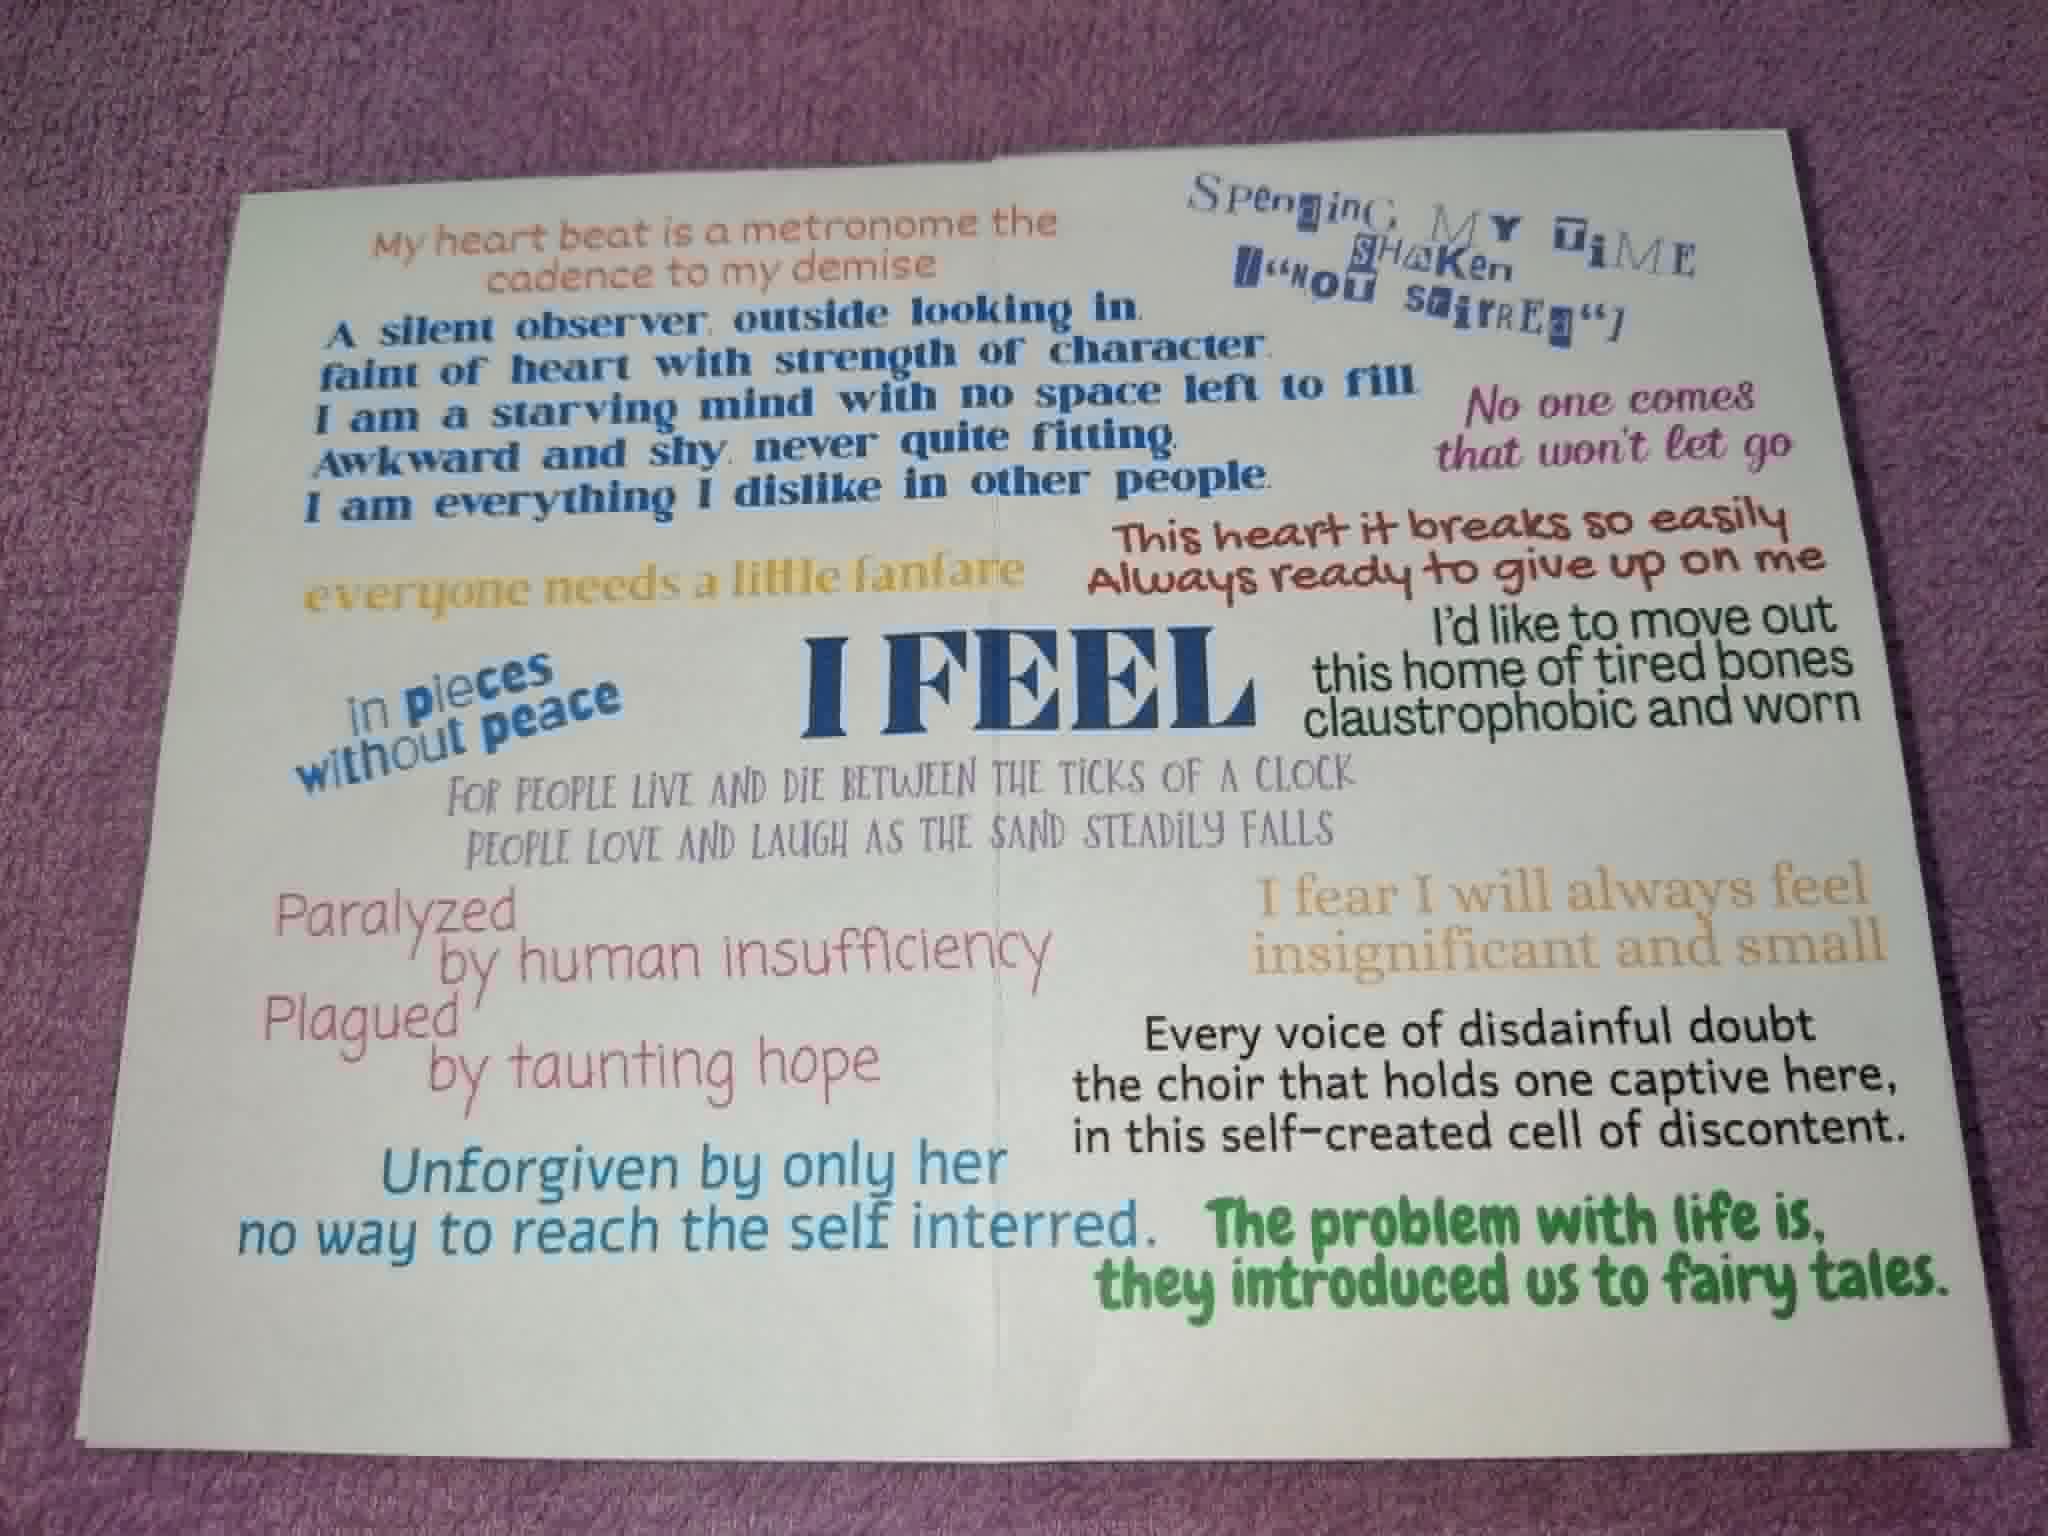 My heart beat is a metronome the
cadence to my demise
Spending MY TiME
SHaKen
["NOT StirrEd"]
A silent observer, outside looking in.
faint of heart with strength of character.
I am a starving mind with no space left to fill
Awkward and shy, never quite fitting.
I am everything I dislike in other people.
No one comes
that won't let go
This heart it breaks so easily
Always ready to give up on me
everyone needs a little fanfare
I'd like to move out
this home of tired bones
claustrophobic and worn
I FEEL
in pieces
without peace
FOR PEOPLE LiVE AND DiE BETWEEN THE TiCKS OF A CLOCK
PEOPLE LOVE AND LAUGH AS THE SAND STEADiLY FALLS
Paralyzed
by human insufficiency
Plagued
by taunting hope
I fear I will always feel
insignificant and small
Every voice of disdainful doubt
the choir that holds one captive here,
in this self-created cell of discontent.
Unforgiven by only her
no way to reach the self interred.
The problem with life is,
they introduced us to fairy tales.